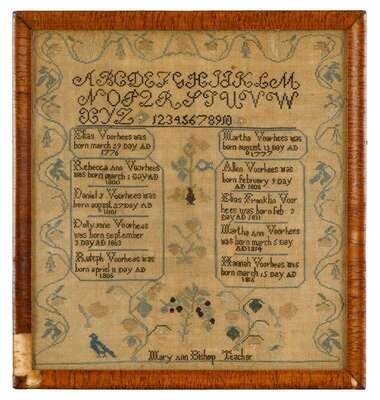 ABCDEFGHIJKLM
NOPQRSTUVW
XYZ 12345678910
Elias Voorhees was
born march 29 DAY AD
1776
Rebecca ann Voorhees
was born march 1 DAY AD
1800
Daniel Voorhees was
born august 27 DAY AD
1801
Dollyanne Voorhees
was born september
3 DAY AD 1803
Ruleph Voorheas was
born april 11 DAY AD
1806
Martha Voorhees was
born august 13 DAY AD
1777
Allen Voorhees was
born february 9 DAY
AD 1808
Elias Franklin Voor
hees was born feb 2
DAY AD 1811
Martha ann Voorhees
was born march 5 DAY
AD 1814
Hannah Voorhees was
born march 15 DAY AD
1816
Mary ann Bishop Teacher